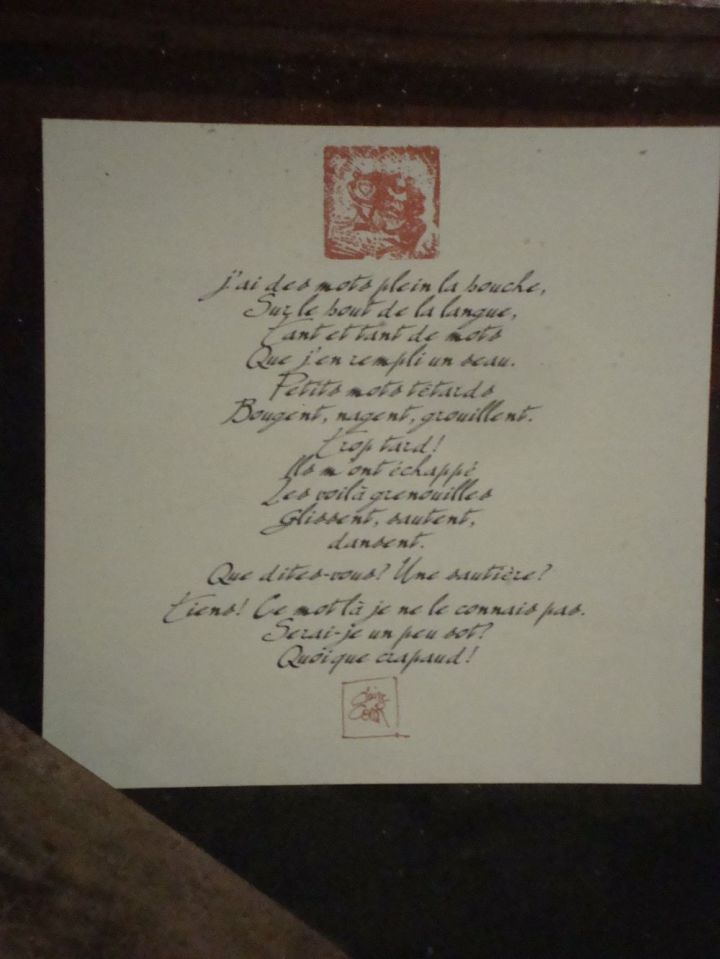 j'ai des mots plein la bouche,
Sur le bout de la langue,
Tant et tant de mots
Que j'en rempli un seau.
Petits mots tétards
Bougent, nagent, grouillent.
Trop tard!
Ils m'ont échappé
Les voilà grenouilles
glissent, sautent,
dansent.
Que dites-vous? Une sautière?
Tiens! Ce mot là je ne le connais pas.
Serai-je un peu sot?
Quoique crapaud!